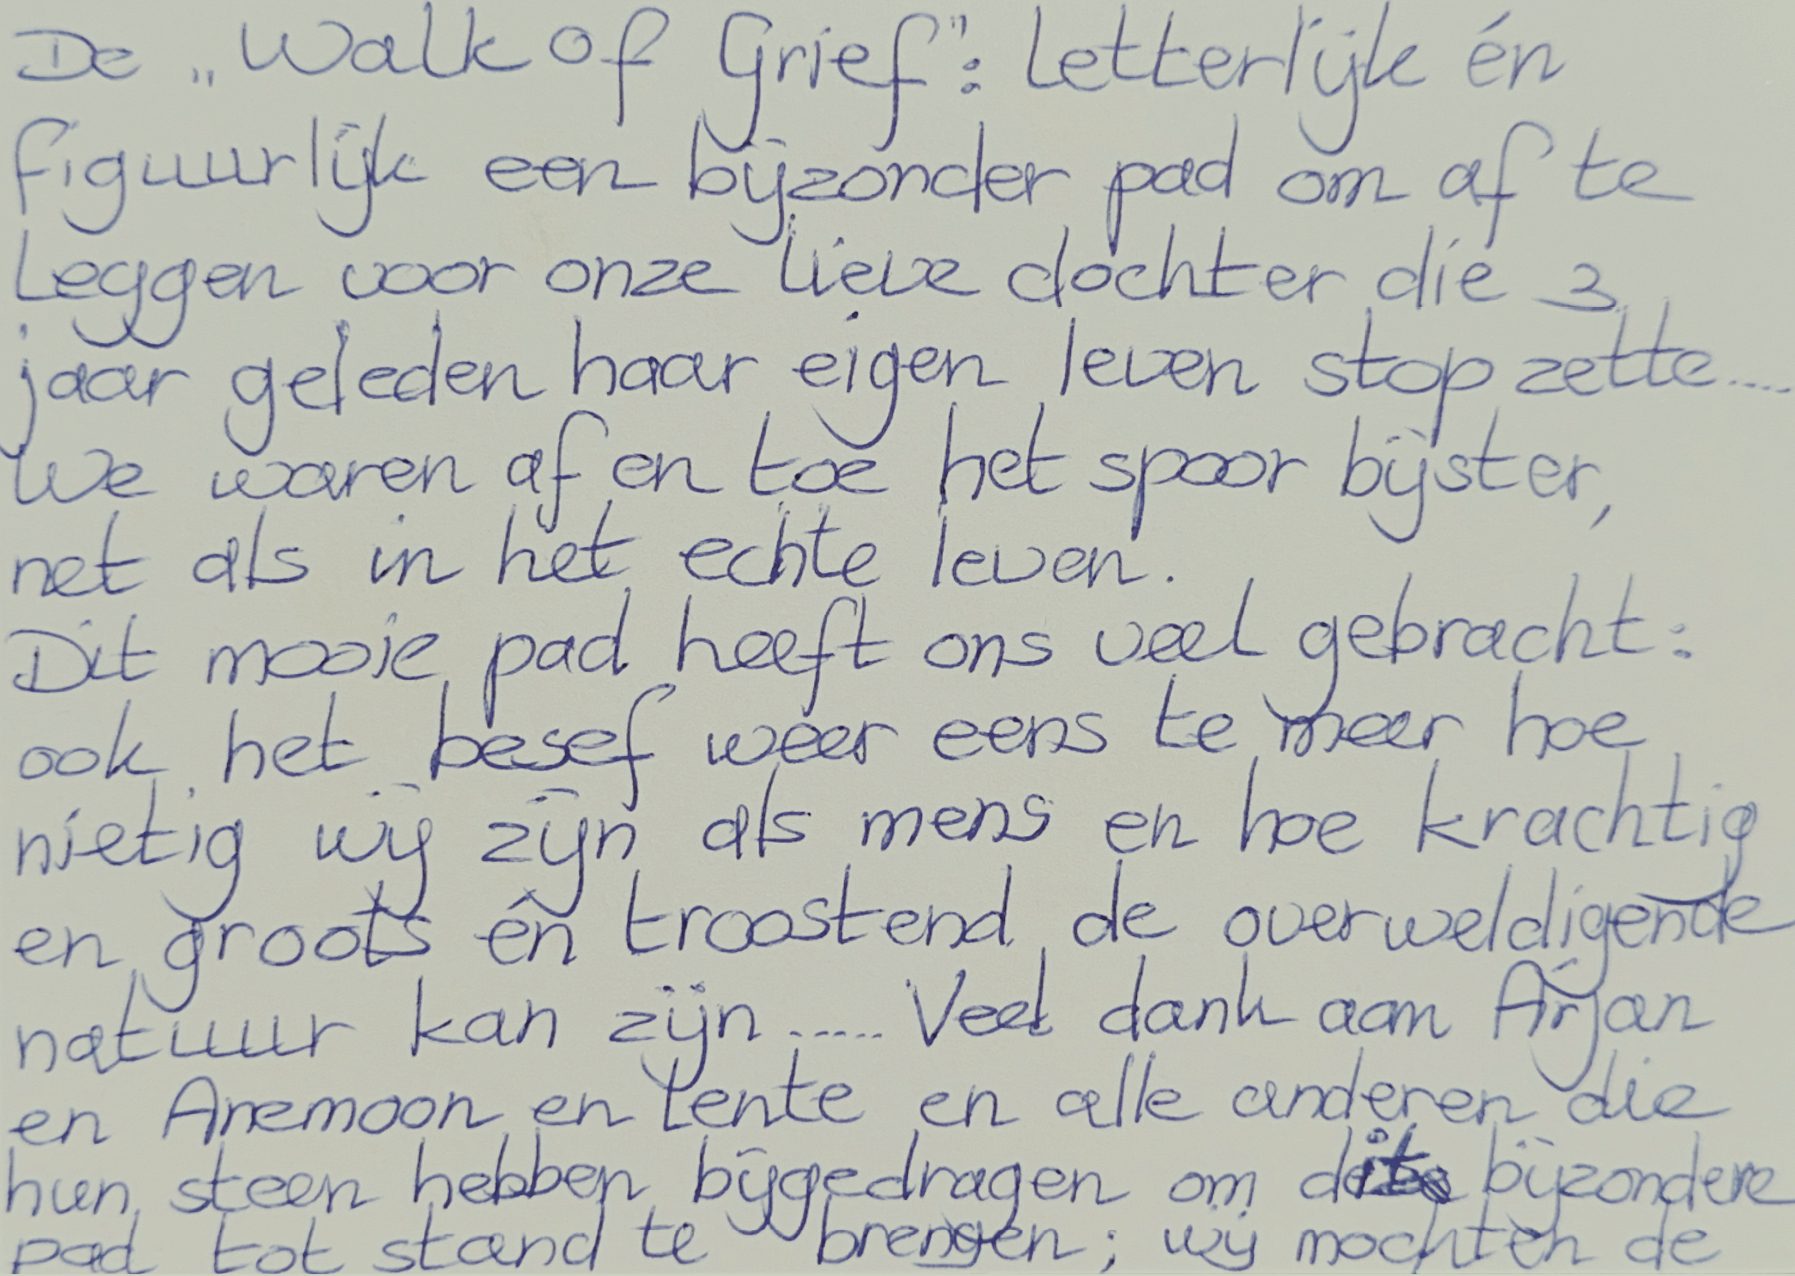 De „Walk of Grief": letterlijk én
figuurlijk een bijzonder pad om af te
leggen voor onze lieve dochter die 3
jaar geleden haar eigen leven stop zette....
We waren af en toe het spoor bijster,
net als in het echte leven.
Dit mooie pad heeft ons veel gebracht:
ook het besef weer eens te meer hoe
nietig wij zijn als mens en hoe krachtig
en groots én troostend de overweldigende
natuur kan zijn ..... Veel dank aan Arjan
en Anemoon en Lente en alle anderen die
hun steen hebben bijgedragen om dit bijzondere
pad tot stand te brengen; wij mochten de